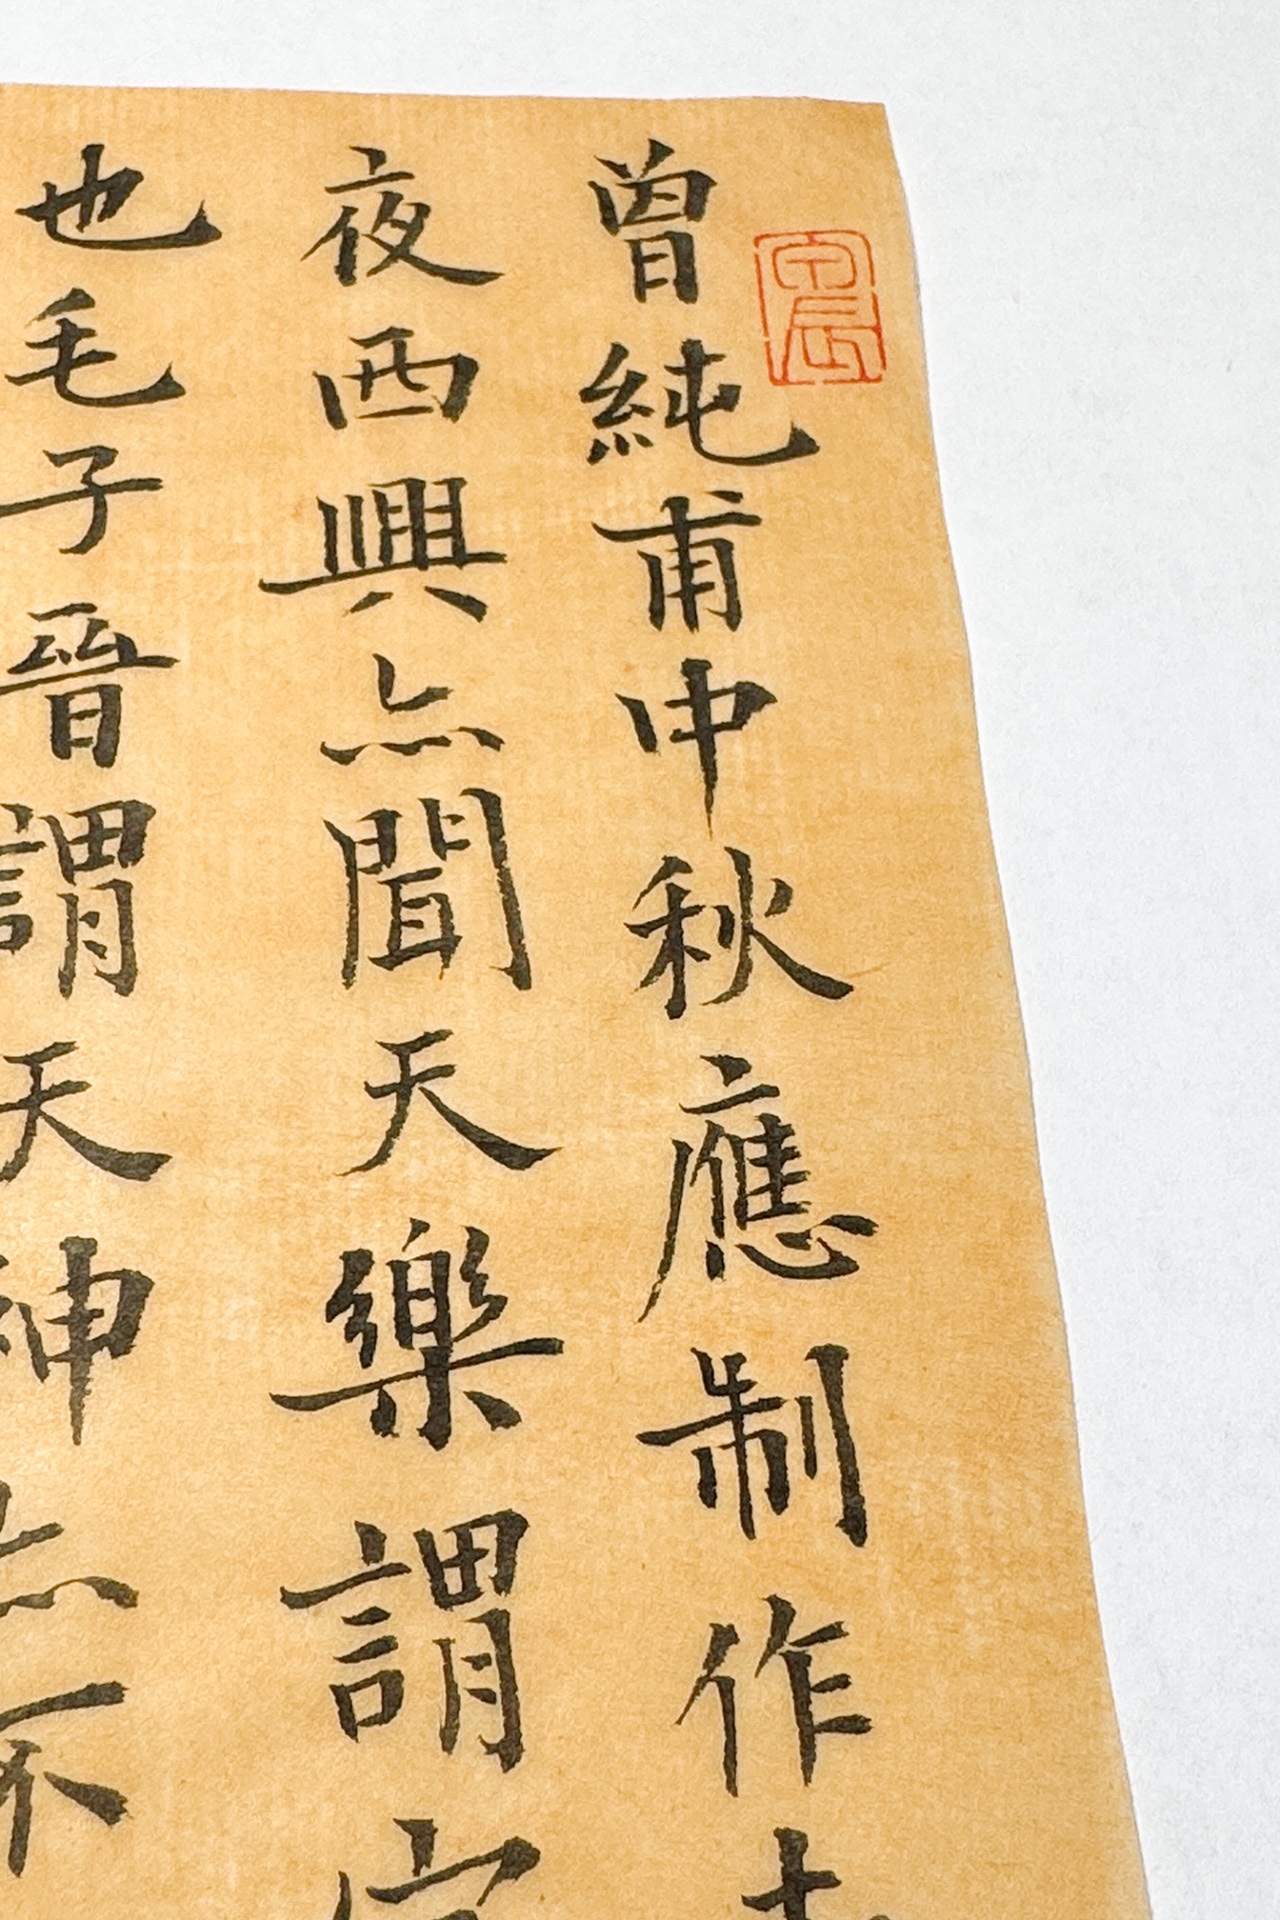 曾純甫中秋應制作
夜西興亦聞天樂謂
也毛子晉謂天神亦不